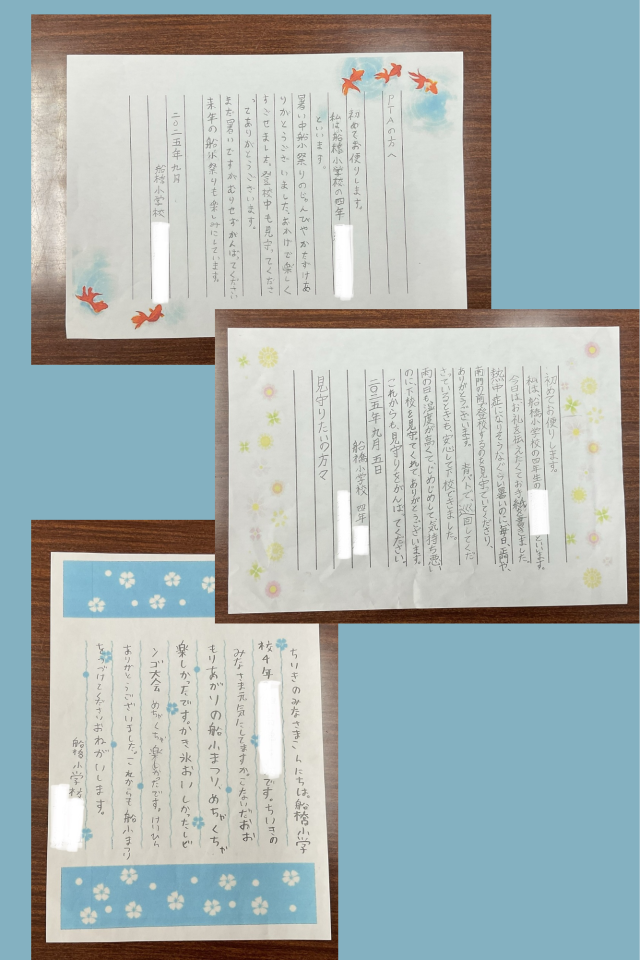 PTAの方へ
初めてお便りします。
私は、船橋小学校の四年
といいます。
暑い中船小祭りのじゅんびやかたずけあ
りがとうございました。おかげで楽しく
すごせました。登校中も見守ってくださ
ってありがとうございます。
まだ暑いですがむりせずがんばってください
来年の船小祭りも楽しみにしています。
二〇二五年九月
船橋小学校
初めてお便りします。
私は、船橋小学校の四年生の といいます。
今日はお礼を伝えたくてお手紙を書きました。
熱中症になりそうなぐらい暑いのに毎日、正門や、
南門の前で登校するのを見守っていてくださり、
ありがとうございます。 青パトで、巡回してくだ
さっているときも、安心して下校できました。
雨の日も、温度が高くて、じめじめして、気持ち悪い
のに、下校を見守ってくれてありがとうございます。
これからも、見守りをがんばってください。
二〇二五年九月五日
船橋小学校 四年
見守りたいの方々
ちいきのみなさまこんにちは。船橋小学
校4年 です。ちいきの
みなさま元気にしてますか。こないだおお
もりあがりの船小まつり、めちゃくちゃ
楽しかったです。かき氷おいしかったしビ
ンゴ大会 めちゃくちゃ楽しかったです。けいひん
ありがとうございました。これからも船小まつり
をつづけてくださいおねがいします。
船橋小学校